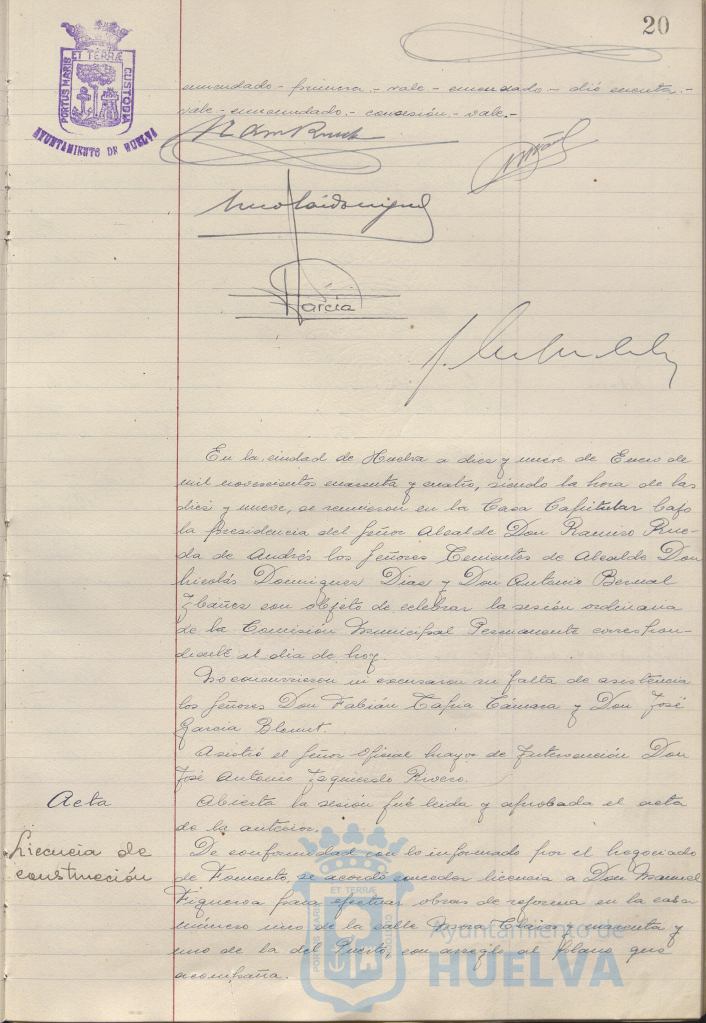 20
PORTUS MARIS ET TERRÆ CUSTODIA
AYUNTAMIENTO DE HUELVA
enmendado - primera - vale - enmendado - dió cuenta -
vale - enmendado - concesión - vale -
García
En la ciudad de Huelva a diez y nueve de Enero de
mil novecientos cuarenta y cuatro, siendo la hora de las
diez y nueve, se reunieron en la Casa Capitular bajo
la presidencia del Señor Alcalde Don Ramiro Rue-
da de Andrés los Señores Tenientes de Alcalde Don
Nicolás Dominguez Diaz y Don Antonio Bernal
Ibáñez con objeto de celebrar la sesión ordinaria
de la Comisión Municipal Permanente correspon-
diente al dia de hoy.
No concurrieron ni excusaron su falta de asistencia
los Señores Don Fabián Tapia Cámara y Don José
Garcia
Asistió el Señor Oficial Mayor de Intervención Don
José Antonio Izquierdo Rivero.
Acta
Abierta la sesión fué leida y aprobada el acta
de la anterior.
Licencia de
construcción
De conformidad con lo informado por el Negociado
de Fomento, se acordó conceder licencia a Don Manuel
Figueroa para efectuar obras de reforma en la casa
número uno de la calle Mora Claros y cuarenta y
uno de la del Puerto, con arreglo al plano que
acompaña.
PORTUS MARIS ET TERRÆ CUSTODIA
Ayuntamiento de
HUELVA